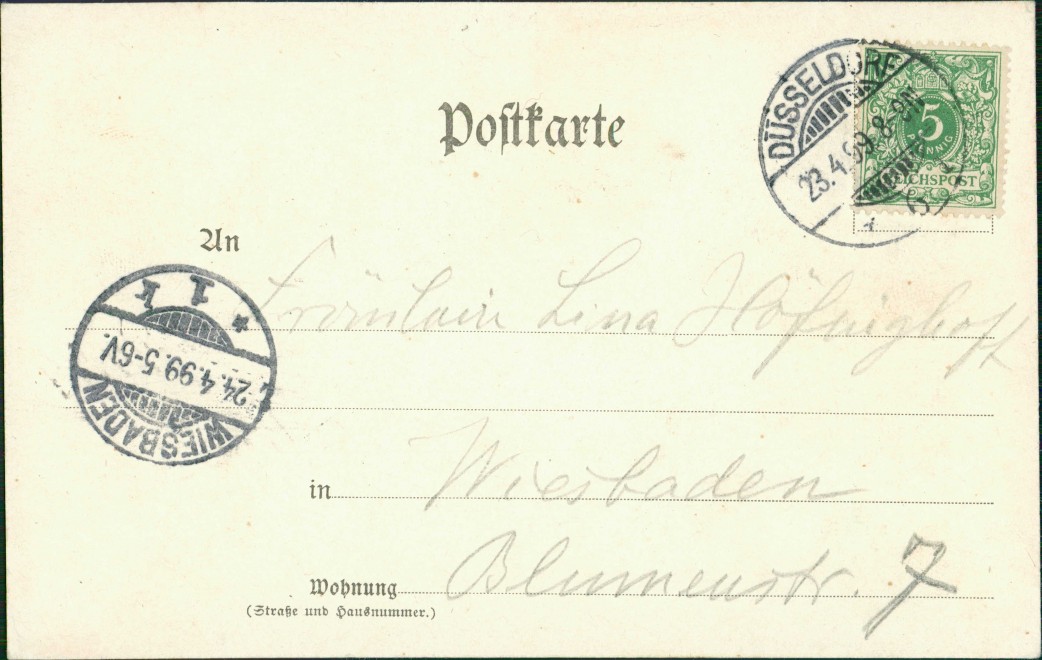 Postkarte
DÜSSELDORF
23.4.99. 8-9N.
5
PFENNIG
REICHSPOST
An
Fräulein Lina
1 k
24.4.99. 5-6V.
WIESBADEN
in Wiesbaden
Wohnung Blumenstr. 7
(Straße und Hausnummer.)